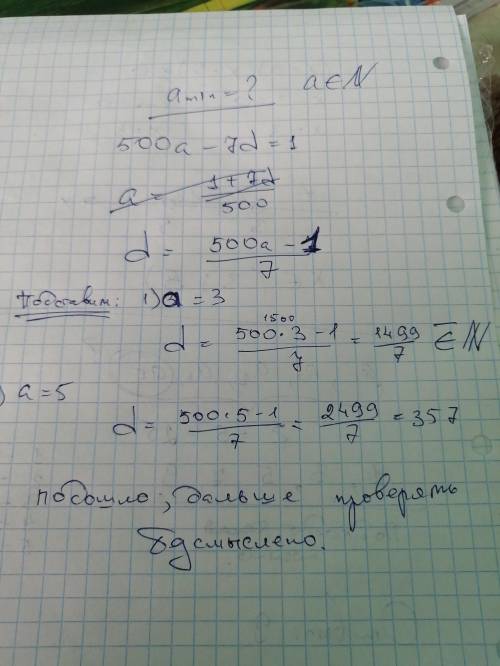 a min = ? a ∈ N
500a - 7d = 1
a = (1 + 7d)/500
d = (500a - 1)/7
Подставим: 1) a = 3
1500
d = (500·3 - 1)/7 = 1499/7 ∈ N
) a = 5
d = (500·5 - 1)/7 = 2499/7 = 357
подошло, дальше проверять
бдсмыслено.